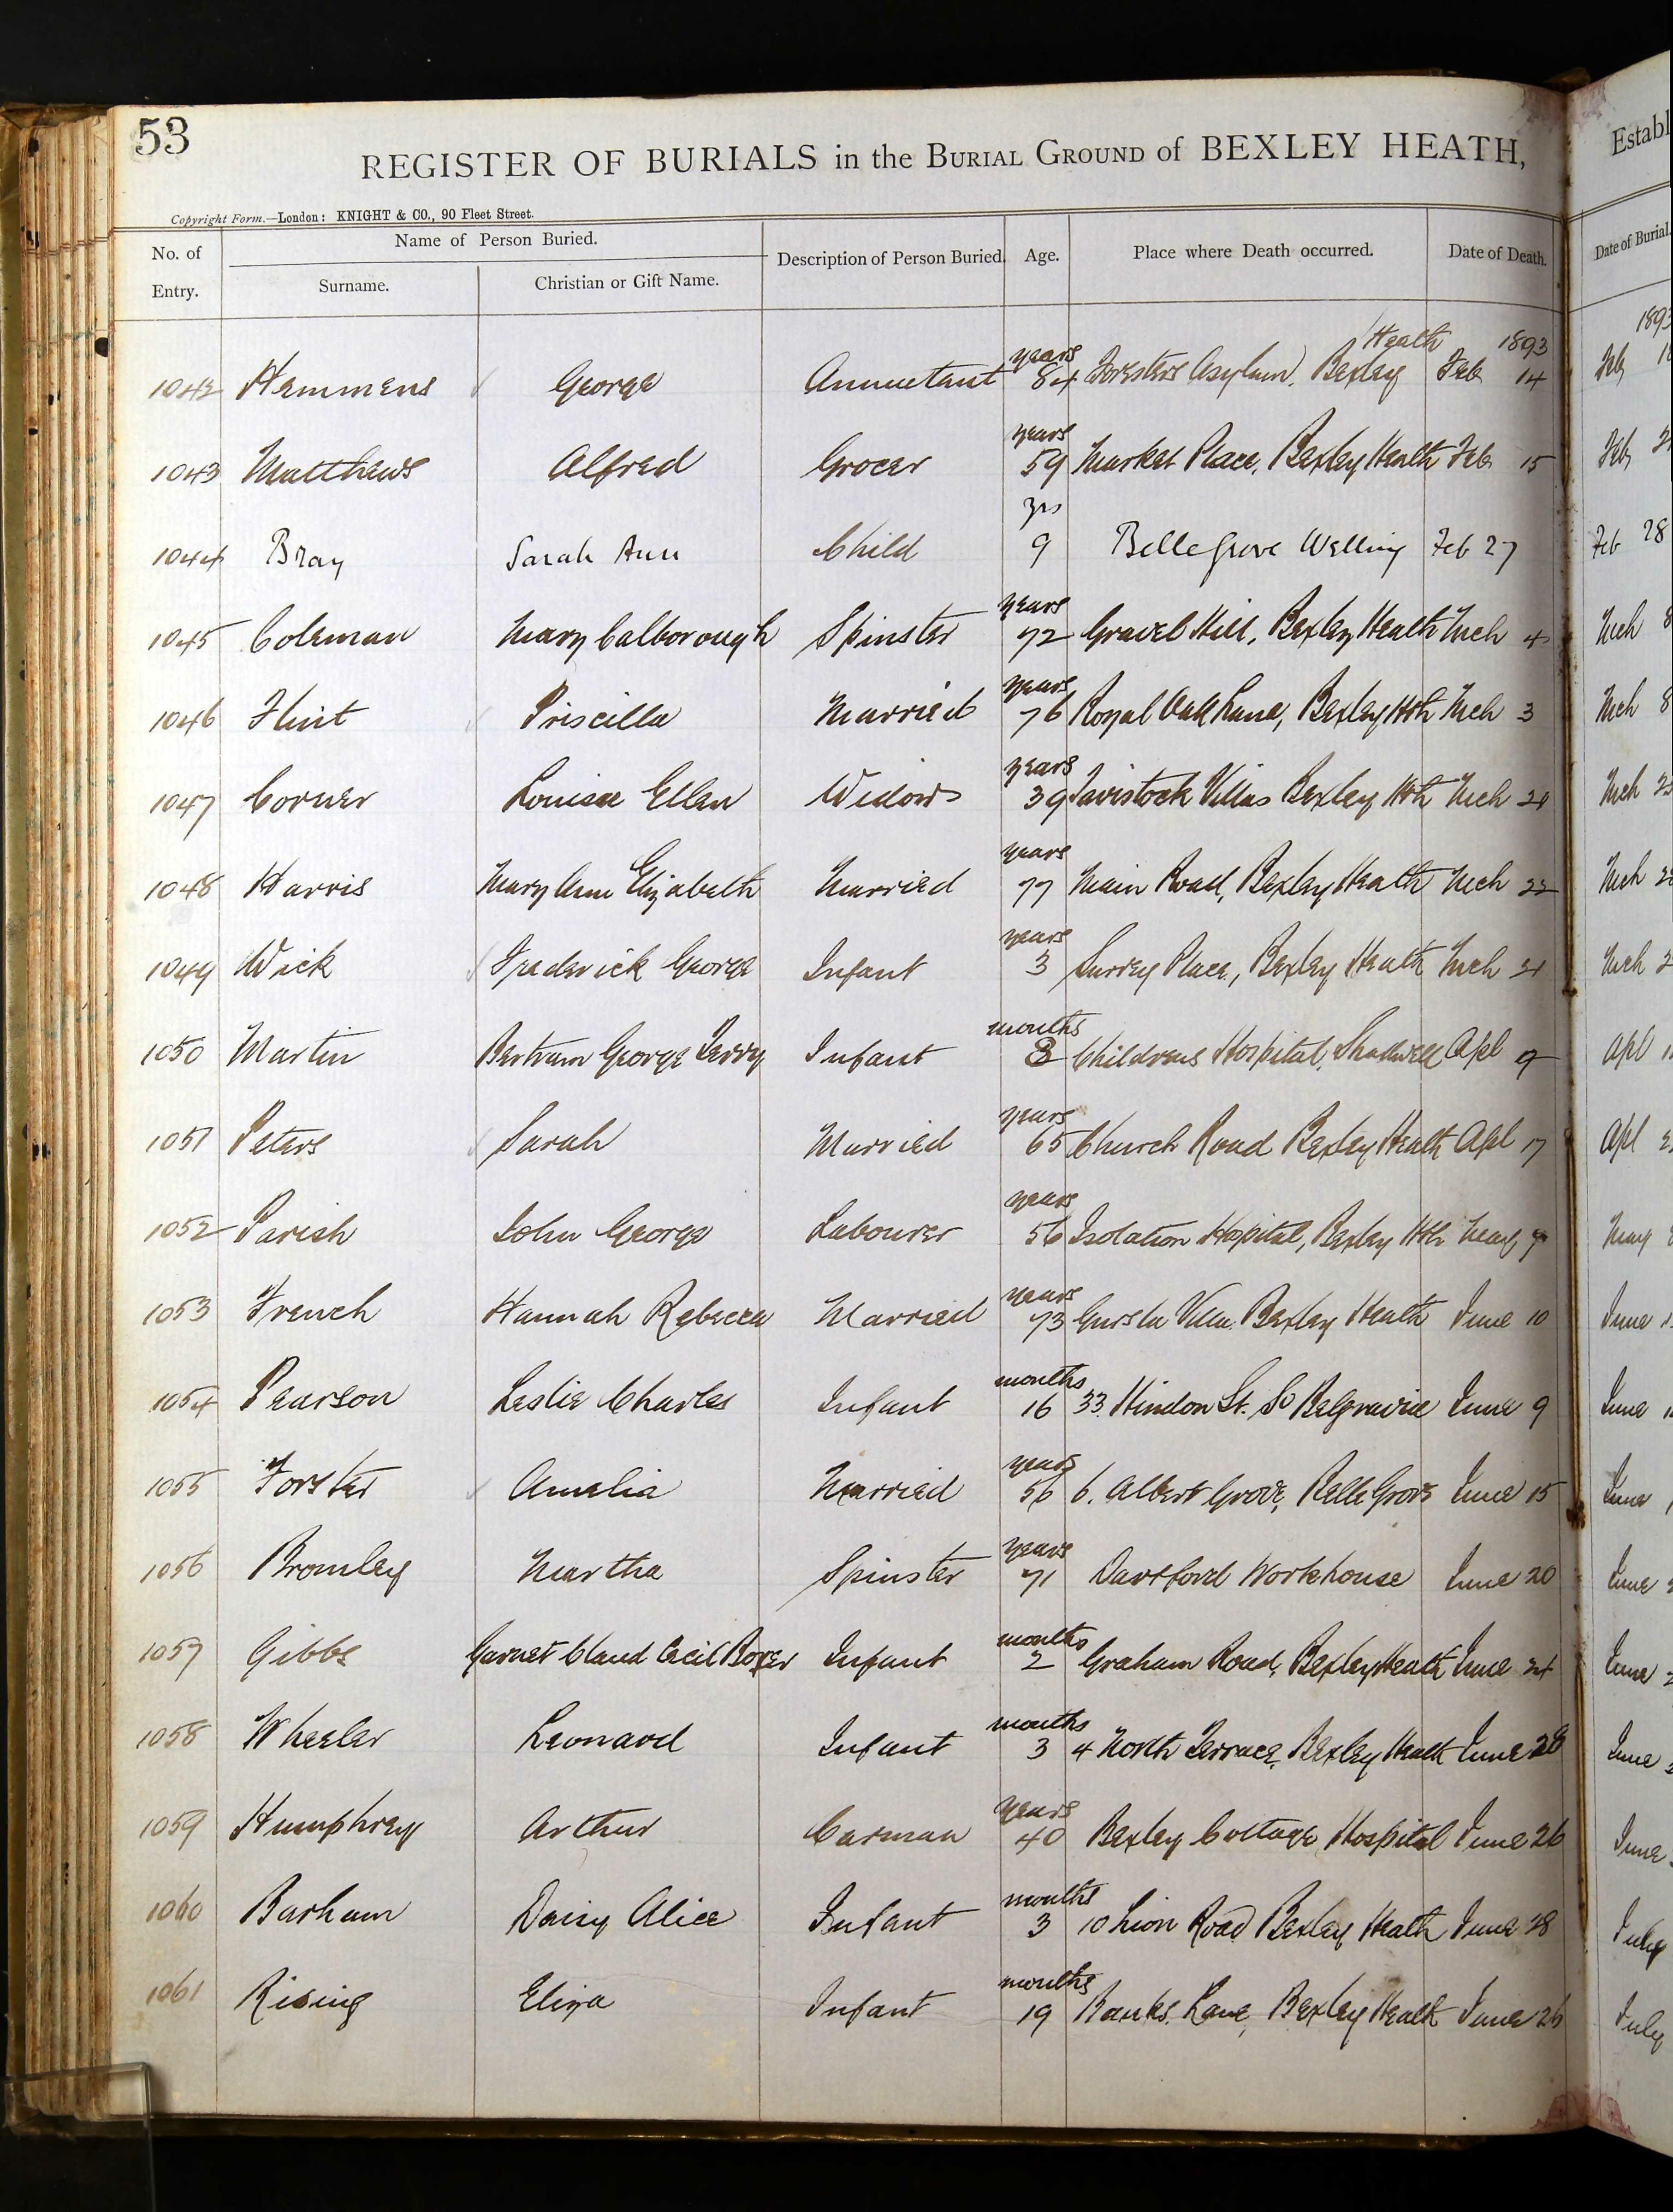 53
REGISTER OF BURIALS in the BURIAL GROUND of BEXLEY HEATH,
Copyright Form.—London: KNIGHT & CO., 90 Fleet Street.
No. of Entry. Name of Person Buried. Surname. Christian or Gift Name. Description of Person Buried. Age. Place where Death occurred. Date of Death. Date of Burial.
1042 Hemmens George Annuitant years 84 Foresters Asylum, Bexley Heath 1893 Feb 14
1043 Matthews Alfred Grocer years 59 Market Place, Bexley Heath Feb 15
1044 Bray Sarah Ann Child yrs 9 Belle Grove Welling Feb 27 Feb 28
1045 Coleman Mary Calborough Spinster years 72 Gravel Hill, Bexley Heath Mch 4 Mch 8
1046 Flint Priscilla Married years 76 Royal Oak Lane, Bexley Hth Mch 3 Mch 8
1047 Corner Louisa Ellen Widow years 39 Tavistock Villas Bexley Hth Mch
1048 Harris Mary Ann Elizabeth Married years 77 Main Road, Bexley Heath Mch 22
1049 Wick Frederick George Infant years 3 Surrey Place, Bexley Heath Mch 21
1050 Martin Bertram George Terry Infant months 3 Childrens Hospital, Shadwell Apl 9
1051 Peters Sarah Married years 65 Church Road Bexley Heath Apl 17
1052 Parish John George Labourer years 56 Isolation Hospital, Bexley Hth May
1053 French Hannah Rebecca Married years 73 Villa Bexley Heath June 10
1054 Pearson Leslie Charles Infant months 16 33 Hindon St. So Belgravia June 9
1055 Forster Amelia Married years 56 6. Albert Grove, Belle Grove June 15
1056 Bromley Martha Spinster years 71 Dartford Workhouse June 20
1057 Gibbs Garnet Claud Cecil Boxer Infant months 2 Graham Road, Bexley Heath June 24
1058 Wheeler Leonard Infant months 3 4 North Terrace, Bexley Heath June 28
1059 Humphrey Arthur Carman years 40 Bexley Cottage Hospital June 26
1060 Barham Daisy Alice Infant months 3 10 Lion Road Bexley Heath June 28 July
1061 Rising Eliza Infant months 19 Banks Lane, Bexley Heath June 26 July